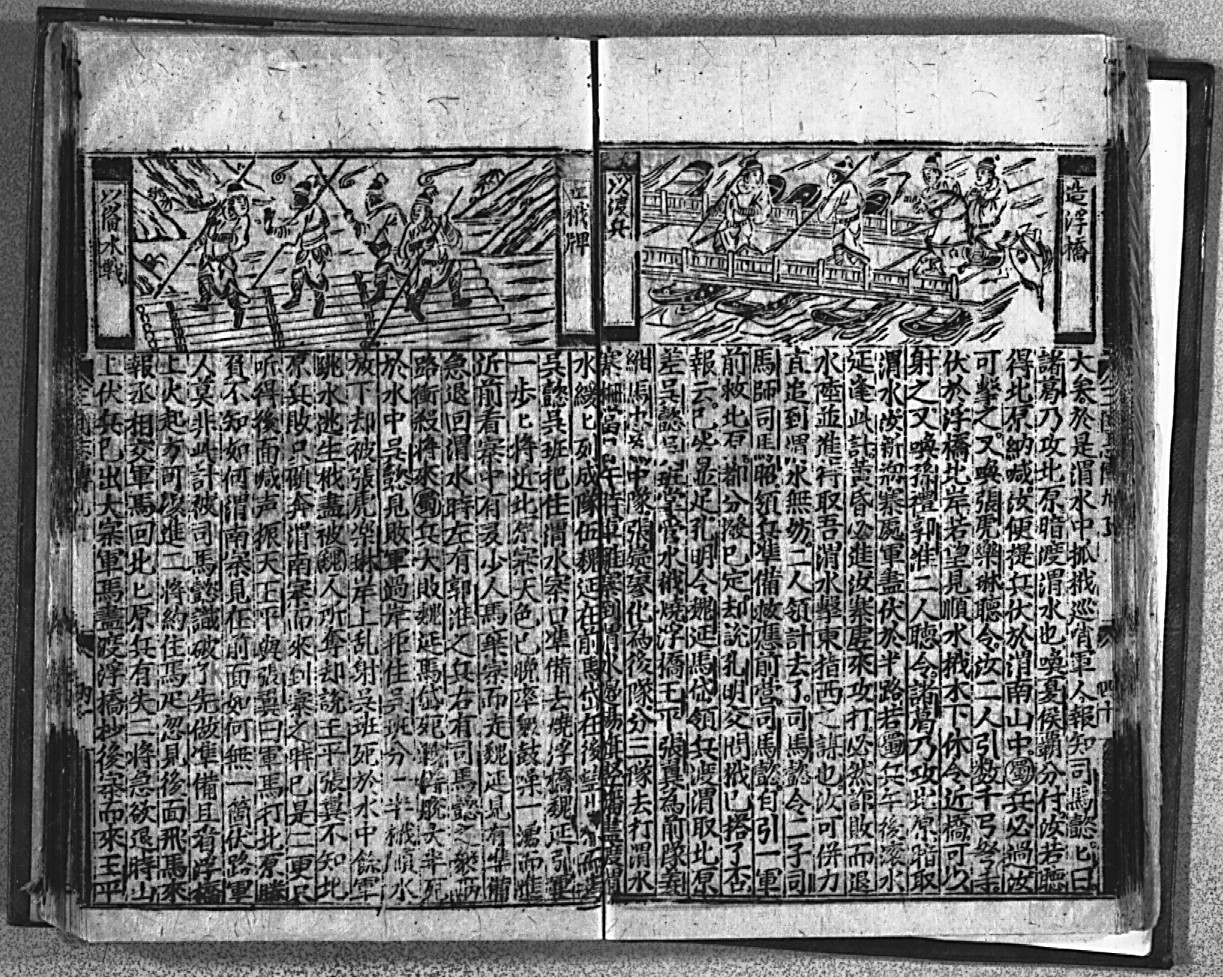 造浮橋
以渡兵
大矣於是渭水中孤栰巡宵軍人報知司馬懿匕曰
諸葛乃攻北原暗度渭水也喚夏侯霸分付汝若聽
得北原納喊汝便提兵伏於渭南山中蜀兵必過汝
可擊之又喚張虎樂琳聽令汝二人引数千弓弩手
伏於浮橋北岸若望見順水栰木下休令近橋可以
射之又喚孫禮郭淮二人聽令諸葛乃攻北原暗取
渭水汝新寨處軍盡伏於半路若蜀兵午後滚水
延逢此計黃昏必進汝寨虚來攻打必然詐敗而退
水陸並進行取吾渭水擊東指西之謀也汝可併力
直追到渭水無妨二人領計去了司馬懿令二子司
馬師司馬昭領兵準備救應前營司馬懿自引一軍
前救北原都分潑已定却說孔明交問栰已搭了否
報云已皆显足孔明令魏延馬岱領兵渡渭取北原
差吳懿吳班掌管水栰燒浮橋王平張翼為前隊姜
維馬忠為中隊張嶷寥化為後隊分三隊去打渭水
寒柵當日午時軍離寨到渭水
立栰牌
以習水戰
水緩匕列成隊伍魏延在前馬岱在後
吳懿吳班把住渭水寨口準備去燒浮橋魏延引軍
一歩匕將近北原寨天色已晚率衆鼓噪一湧而進
近前看寨中有多少人馬棄寨而走魏延見有準備
急退回渭水時左有郭淮之兵右有司馬懿之衆兩
路衝殺將來蜀兵大敗魏延馬岱死戰得脫大半死
於水中吳懿見敗軍過岸拒住吳班分一半栰順水
放下却被張虎樂琳岸上乱射吳班死於水中餘軍
跳水逃生栰盡被魏人所奪却說王平張翼不知北
原兵敗只顧奔渭南寨而來到寨之時已是二更只
听得後面喊声振天王平與張翼曰軍馬打北原勝
負不知如何渭南寨見在前面如何無一箇伏路軍
人莫非此計被司馬懿識破了先做準備且看浮橋
上火起方可後進二將約住馬疋忽見後面飛馬來
報丞相交軍馬回北匕原兵有失二將急欲退時山
上伏兵已出大寨軍馬盡渡浮橋抄後寨而來王平